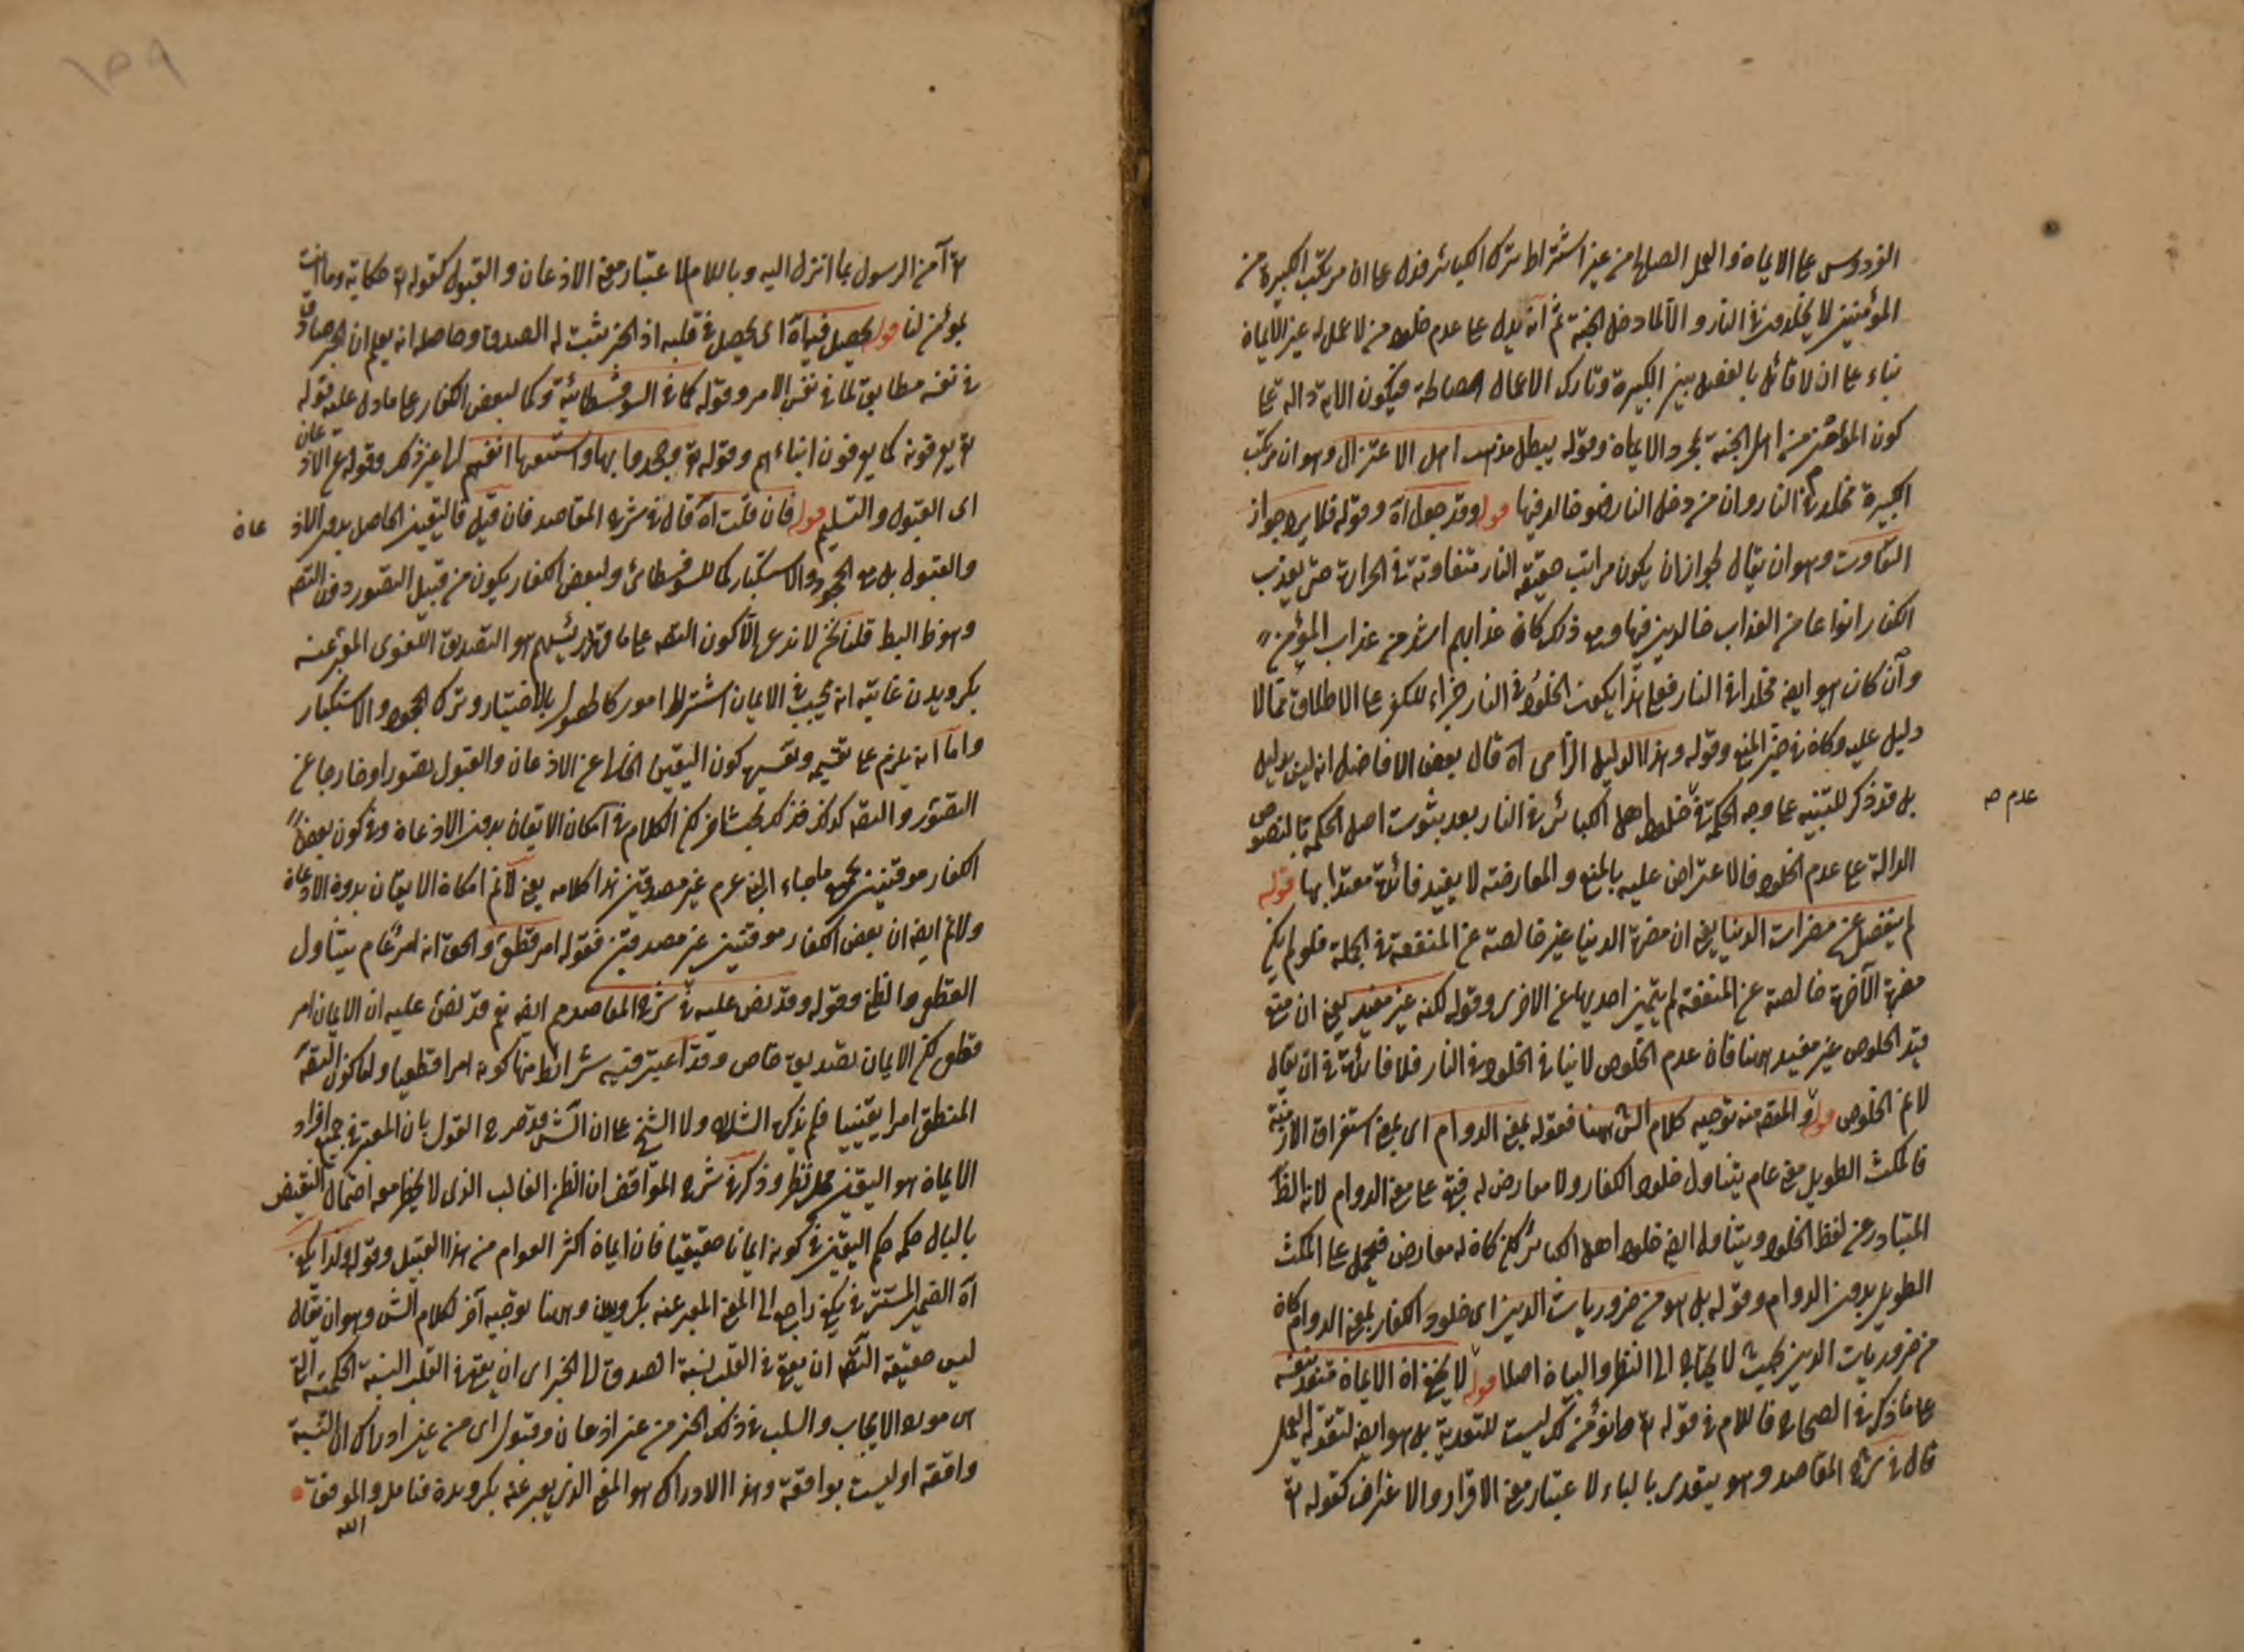 الفردوس على الايمان والعمل الصالح من غير اشتراط ترك الكبائر فدل على ان مرتكب الكبيرة من
المؤمنين لا يخلدون في النار والا لما دخل الجنة ثم انه يدل على عدم خلود من لا عمل له غير الايمان
بناء على ان لا قائل بالفصل بين الكبيرة وتارك الاعمال الصالحة فيكون الاية دالة على
كون المؤمن من اهل الجنة بمجرد الايمان وقوله يبطل مذهب اهل الاعتزال وهو ان مرتكب
الكبيرة مخلد في النار وان من دخل النار فهو خالد فيها قوله وقد جعل آه وقوله فلا يرد جواز
التفاوت وهو ان يقال يجوز ان يكون مراتب حقيقة النار متفاوتة في الحرارة حتى يعذب
الكفار انواعا من العذاب خالدين فيها ومع ذلك كان عذابهم اشد من عذاب المؤمن
وان كان هو ايضا مخلدا في النار فعلى هذا يكون الخلود في النار جزاء للكفر على الاطلاق مما لا
دليل عليه وكان في حيز المنع وقوله وهذا الدليل الزامى آه قال بعض الافاضل انه ليس بدليل
بل قد ذكر للتنبيه على وجه الحكمة في خلود اهل الكبائر في النار بعد ثبوت اصل الحكم بالنصوص
عدم صح
الدالة على عدم الخلود فالاعتراض عليه بالمنع والمعارضة لا يفيد فائدة معتدا بها قوله
لم ينفصل عن مضرات الدنيا يعنى ان مضرة الدنيا غير خالصة عن المنفعة في الجملة فلو لم يكن
مضرة الآخرة خالصة عن المنفعة لم يتميز احديهما عن الاخرى وقوله لكنه غير مفيد يعنى ان منع
قيد الخلوص غير مفيد ههنا فان عدم الخلوص لا ينافى الخلود في النار فلا فائدة في ان يقال
لا نم الخلوص قوله والمقصود منه توجيه كلام الش ههنا فقوله بمعنى الدوام اى بمعنى استغراق الازمنة
فالمكث الطويل معنى عام يتناول خلود الكفار ولا معارض له فبقى على معنى الدوام لانه الظ
المتبادر عن لفظ الخلود ويتناول ايضا خلود اهل الكبائر لكن كان له معارض فيحمل على المكث
الطويل بدون الدوام وقوله بل هو من ضروريات الدين اى خلود الكفار بمعنى الدوام كان
من ضروريات الدين بحيث لا يحتاج الى النظر والبيان اصلا قوله لا يخفى ان الايمان متعد بنفسه
على ما ذكر في الصحاح فاللام في قوله تع انؤمن لك ليست للتعدية بل هو ايضا لتقوية العمل
قال في شرح المقاصد وهو يتعدى بالباء لاعتبار معنى الاقرار والاعتراف كقوله تع
تع آمن الرسول بما انزل اليه وباللام لاعتبار معنى الاذعان والقبول كقوله تع حكاية وما انت
بمؤمن لنا قوله يحصل فيه آه اى يحصل في قلبه اذ الخبر يثبت له الصدق وحاصله انه يعلم ان الخبر صادق
في نفسه مطابق لما في نفس الامر وقوله كما في السوفسطائية وكما لبعض الكفار على ما دل عليه قوله
تع يعرفونه كما يعرفون ابناءهم وقوله تع وجحدوا بها واستيقنها انفسهم الى غير ذلك وقوله مع الاذعان
اى القبول والتسليم قوله فان قلت آه قال في شرح المقاصد فان قيل فاليقين الحاصل بدون الاذعان
والقبول بل مع الجحود والاستكبار كما للسوفسطائى ولبعض الكفار يكون من قبيل التصور دون التص
وهو ظ البط قلنا نحن لا ندعى الا كون التص على ما فسره رئيسهم هو التصديق اللغوى المعبر عنه
بكرويدن غايته انه يجب في الايمان اشتراط امور كالحصول بالاختيار وترك الجحود والاستكبار
واما انه يلزم على تقسيمه وتفسيره كون اليقين الخالى عن الاذعان والقبول تصورا او خارجا عن
التصور والتص كذلك فذلك بحث آخر لكن الكلام في امكان الايقان بدون الاذعان وفي كون بعض
الكفار موقنين بجميع ما جاء به النبى عم غير مصدقين هذا كلامه يعنى لا نم امكان الايقان بدون الاذعان
ولا نم ايضا ان بعض الكفار موقنين غير مصدقين فقوله امر قطعى والحق انه امر عام يتناول
القطعى والظنى وقوله وقد نص عليه في شرح المقاصد م ايضا نعم قد نص عليه ان الايمان امر
قطعى لكن الايمان تصديق خاص وقد اعتبر فيه شرائط منها كونه امرا قطعيا واما كون التص
المنطقى امرا يقينيا فلم يذكره الشارح ولا الشيخ على ان الش قد صرح القول بان المعتبر في جميع افراد
الايمان هو اليقين محل نظر وذكر في شرح المواقف ان الظن الغالب الذى لا يخطر معه احتمال النقيض
بالبال حكمه حكم اليقين في كونه ايمانا حقيقيا فان ايمان اكثر العوام من هذا القبيل وقوله ولذا يكفى
آه الضمير المستتر في يكفى راجع الى المعنى المعبر عنه بكرويدن وههنا توجيه آخر لكلام الش وهو ان يقال
ليس حقيقة التص ان يقع في القلب نسبة الصدق الى الخبر اى ان يقع في القلب النسبة الحكمية التى
هى مورد الايجاب والسلب في ذلك الخبر من غير اذعان وقبول اى من غير ادراك ان النسبة
واقعة او ليست بواقعة وهذا الادراك هو المعنى الذى يعبر عنه بكرويدن فتامل والموفق
الله
١٥٩